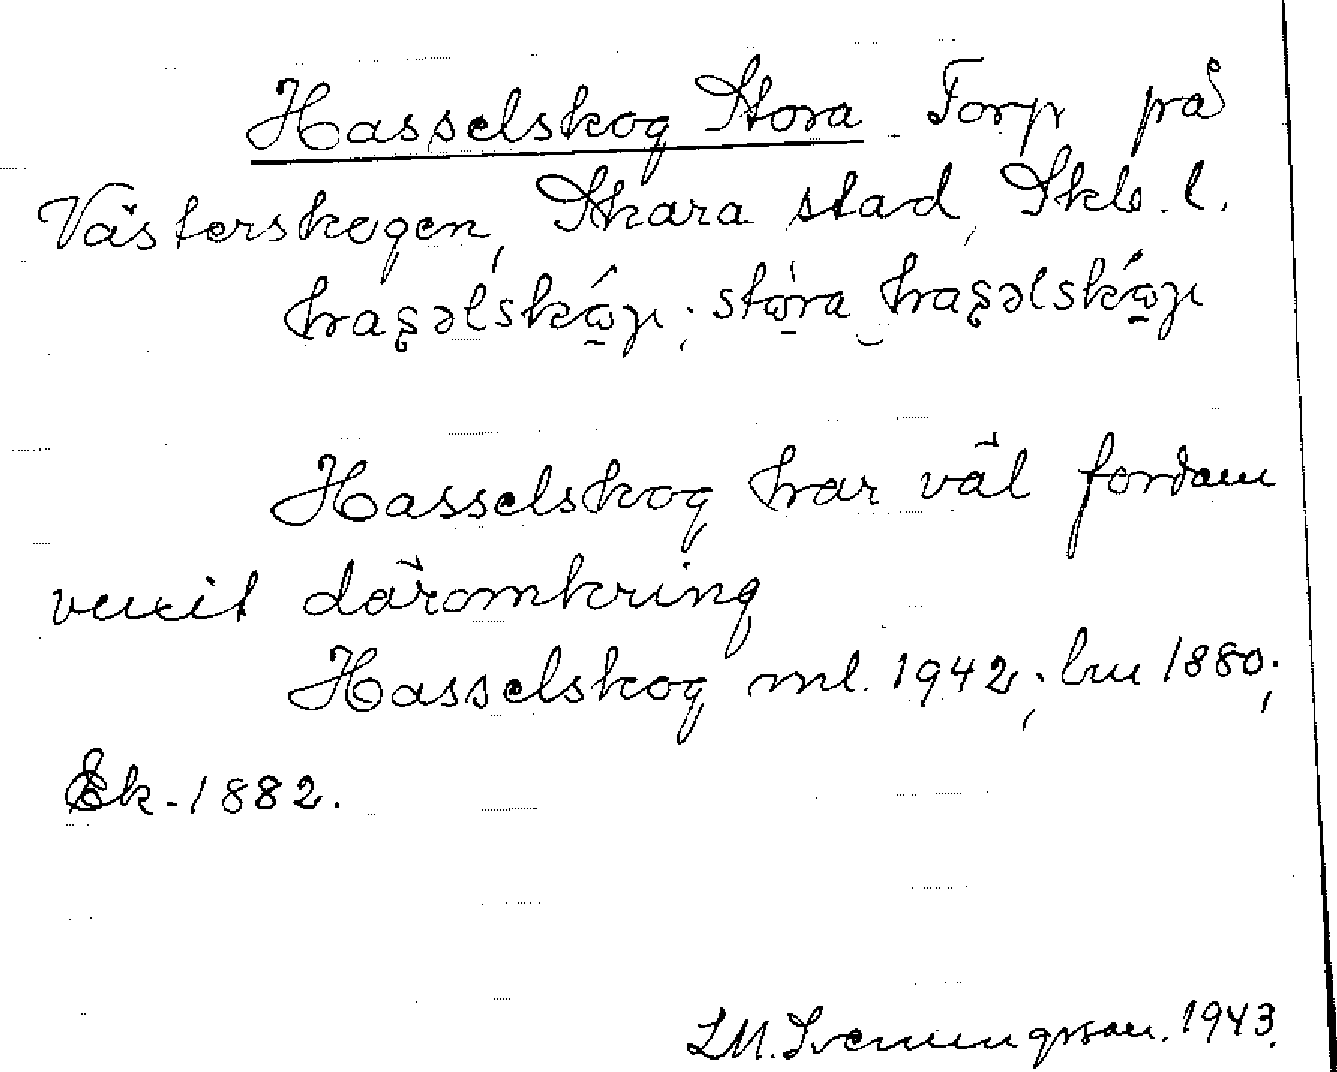 Hasselskog Stora Torp på
Västerskogen, Skara stad, Skb. l.
haʂəlskóⱬ; stòra haʂəlskóⱬ
Hasselskog har väl fordom
vuxit däromkring
Hasselskog ml. 1942; lm 1880;
Ek. 1882.
LM. Svenningsson. 1943.